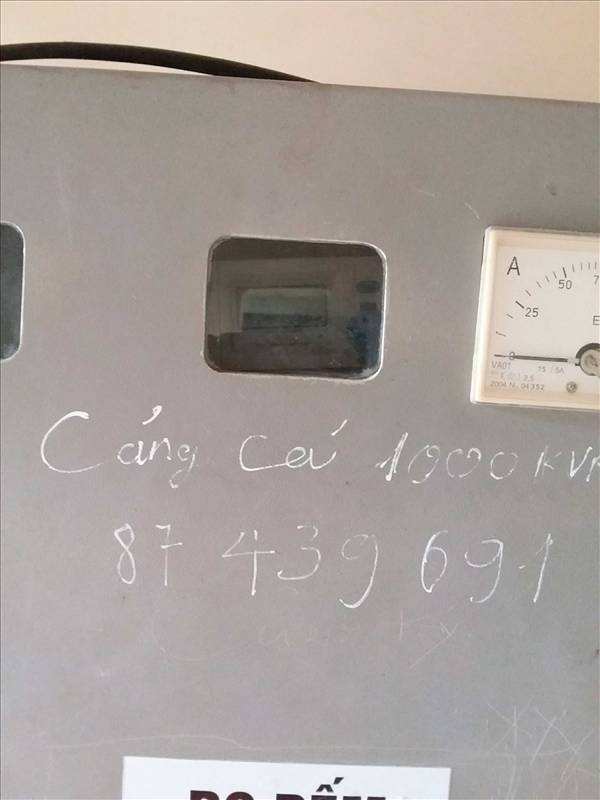 A
25
50
0
VA01
75 / 5A
2.5
2004 N. 04352
Cảng Cá 1000 KVA
87 439 691